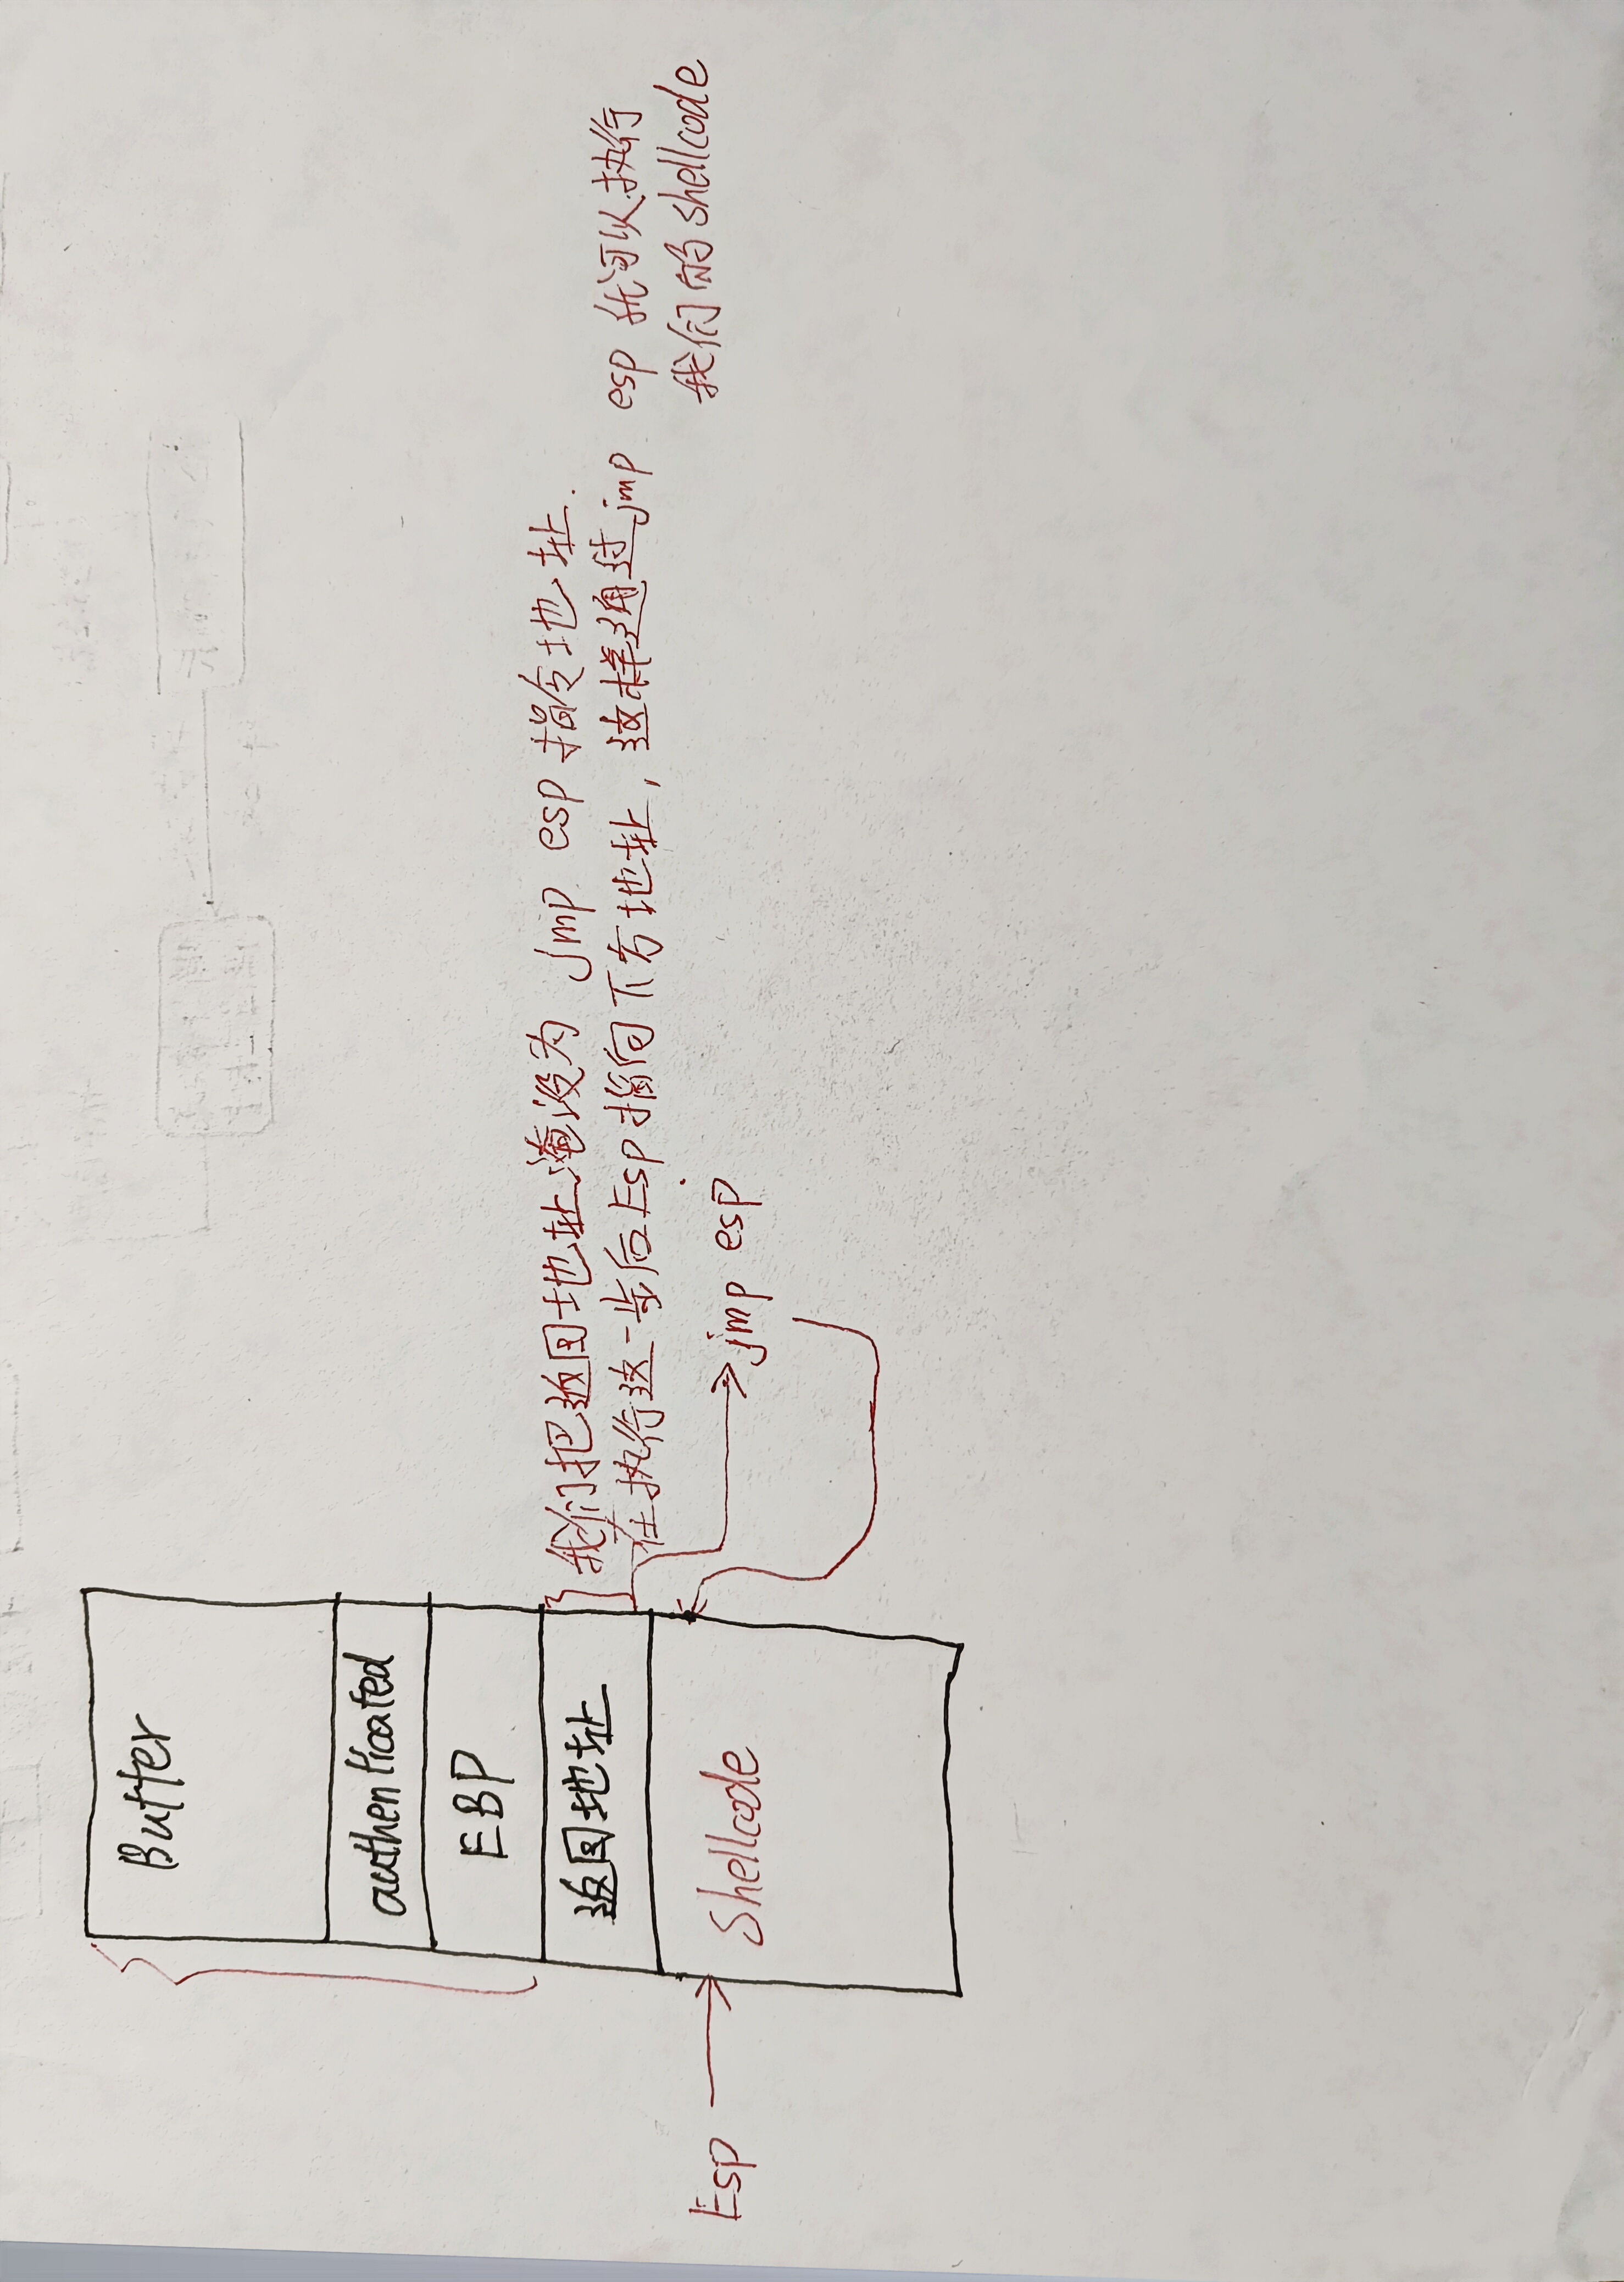 Buffer
authenticated
EBP
返回地址
我们把返回地址淹没为 jmp esp 指令地址.
在执行这一步后Esp指向下方地址, 这样通过jmp esp 就可以执行
我们的shellcode
Esp
Shellcode
jmp esp